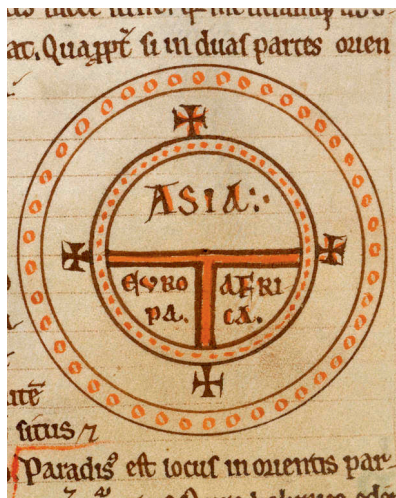 at. Quaꝓpt̄ si in duas partes orien
ASIA:·
EVRO
PA.
AFRI
CA.
situs
Paradisꝰ est locus in orientis par-